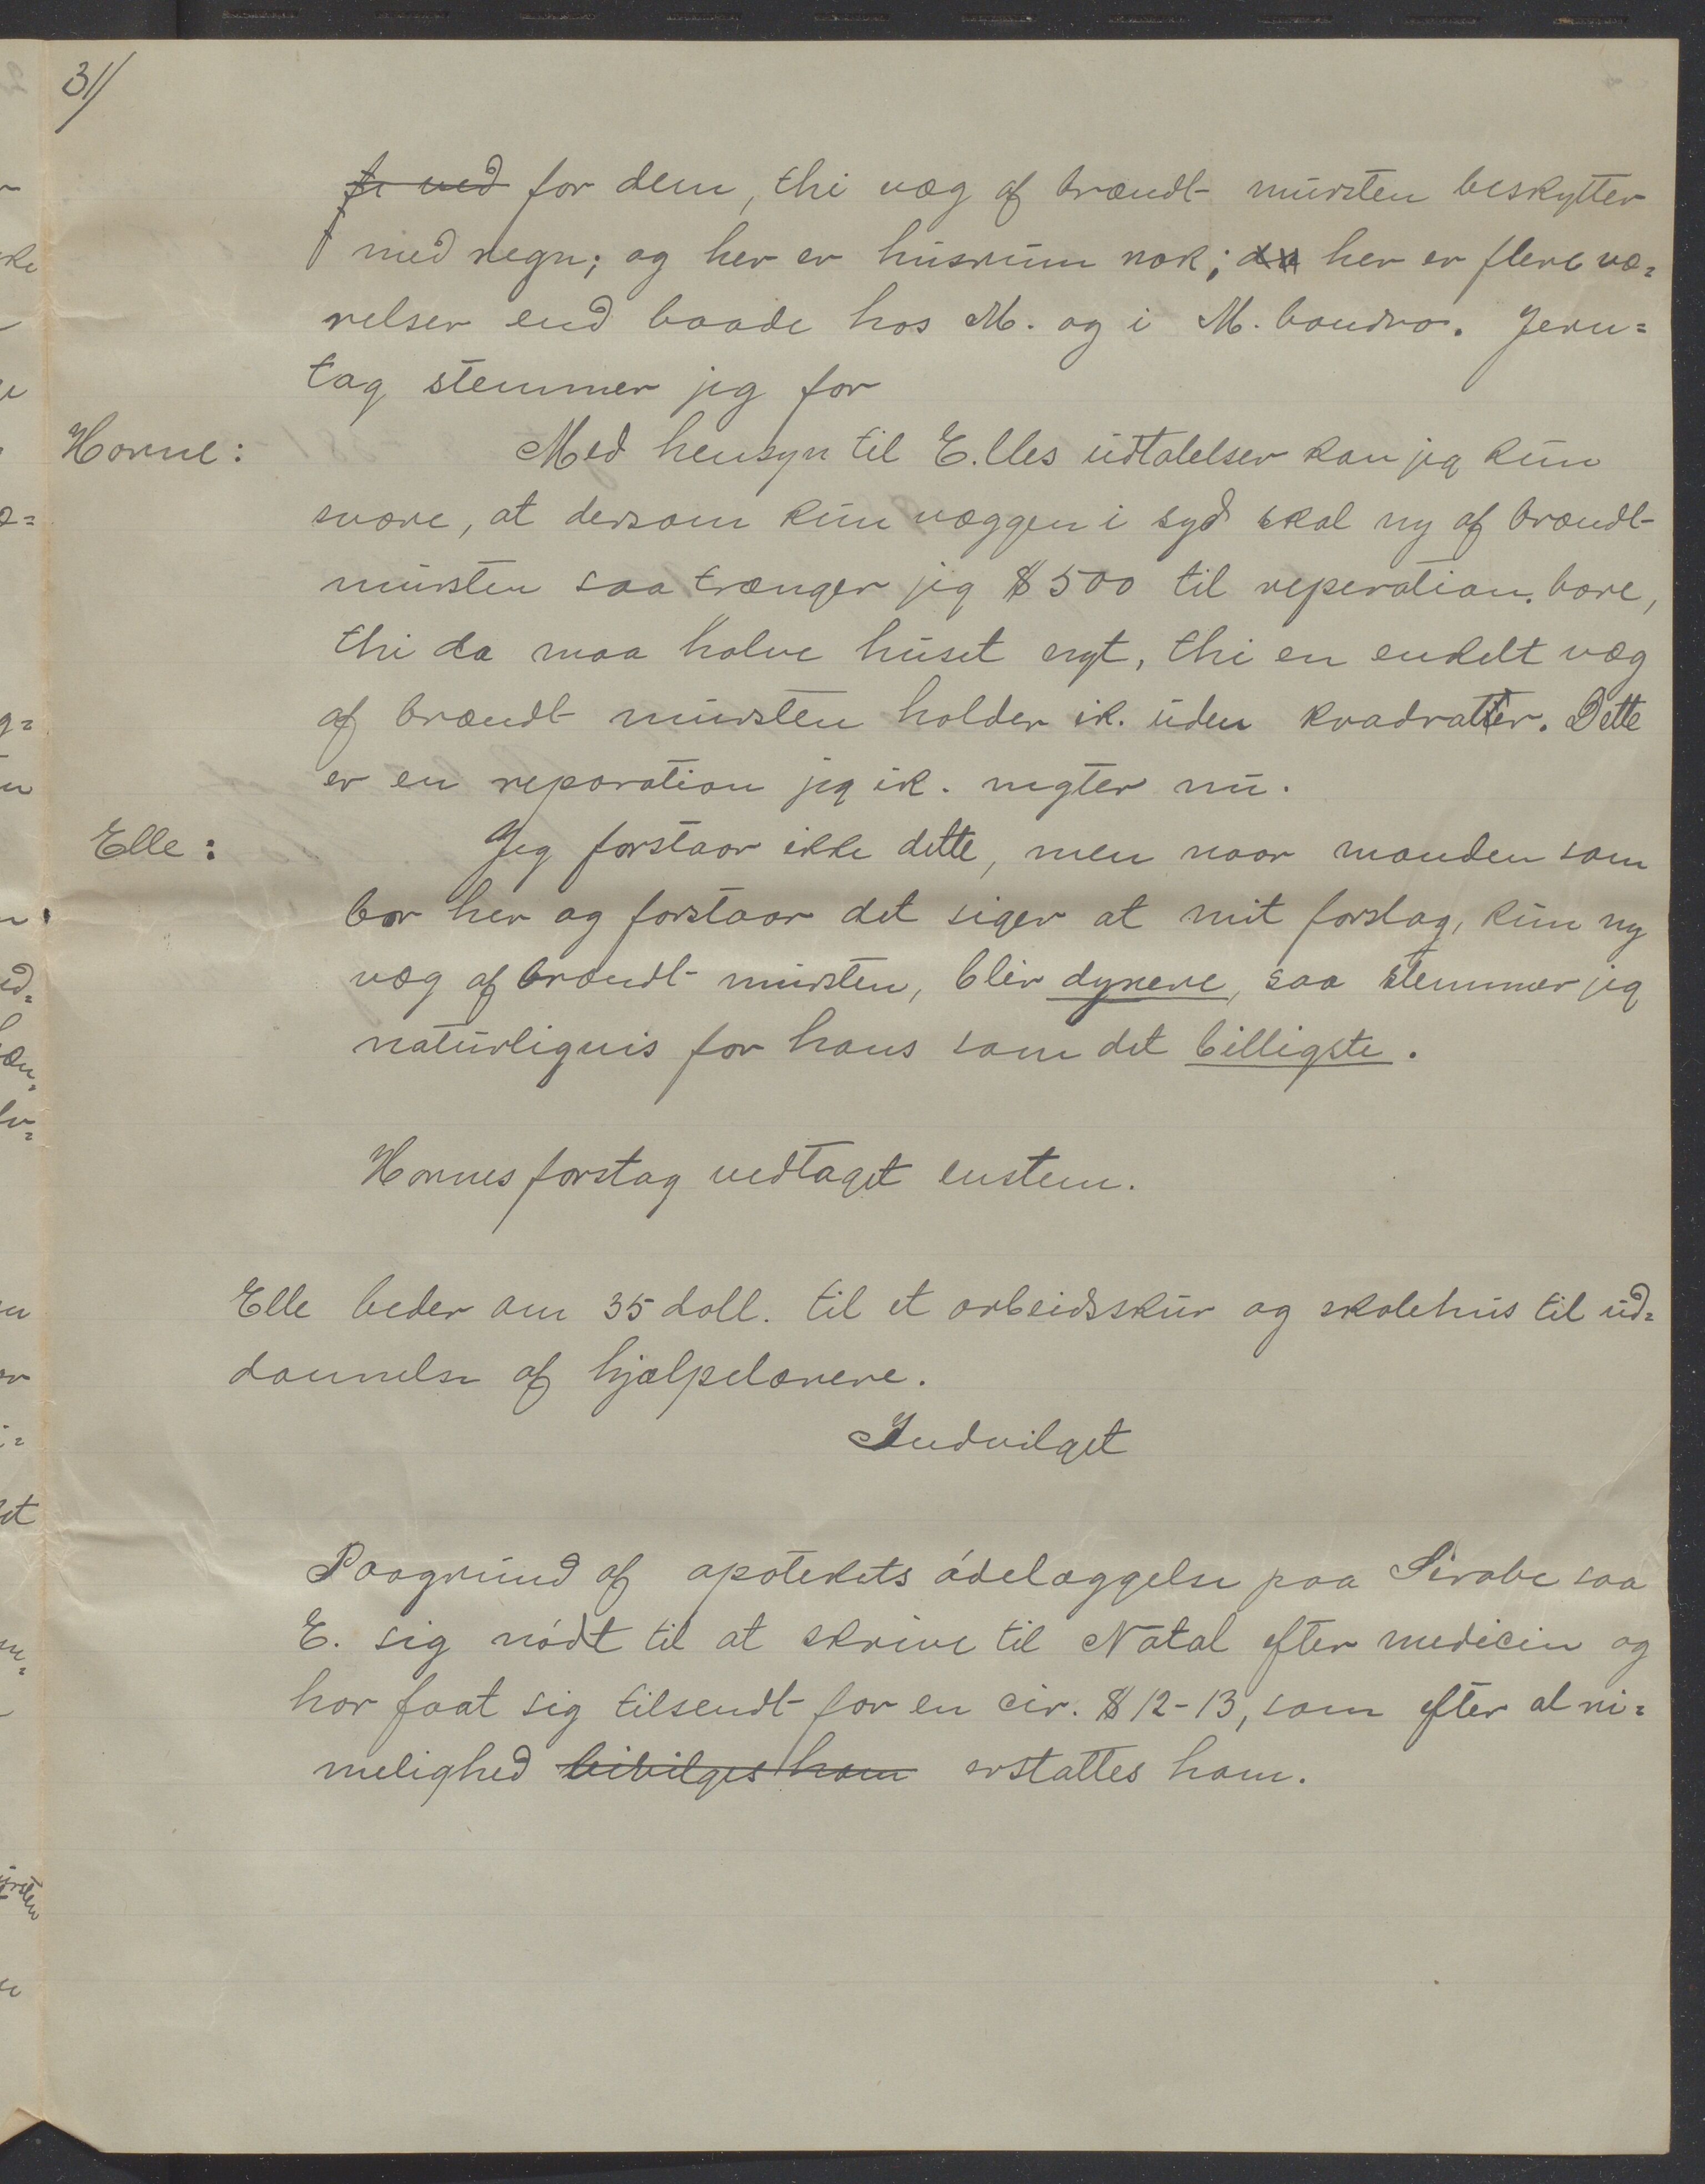 31/
fr ved for dem, thi væg af brændt mursten beskytter
mod regn; og her er husrum nok; da her er flere væ=
relser end baade hos M. og i M.bondro. Jern=
tag stemmer jeg for
Horne: Med hensyn til E.lles udtalelser kan jeg kun
svare, at dersom kun væggen i syd skal ny af brændt
mursten saa trænger jeg $500 til reperation bare,
thi da maa halve huset nyt, thi en enkelt væg
af brændt mursten holder ik. uden kvadratter. Dette
er en reparation jeg ik. negter nu.
Elle: Jeg forstaar ikke dette, men naar manden som
bor her og forstaar det siger at mit forslag, kun ny
væg af brændt mursten, blir dyrere, saa stemmer jeg
naturligvis for hans som det billigste.
Hornes forslag vedtaget enstem.
Elle beder om 35 doll. til et arbeidsskur og skolehus til ud=
dannelse af hjælpelærere.
Indvilget
Paagrund af apotekets ódelæggelse paa Sirabe saa
E. sig nódt til at skrive til Natal efter medicin og
har faat sig tilsendt for en cir. $12-13, som efter al ri=
melighed bivilges ham erstattes ham.